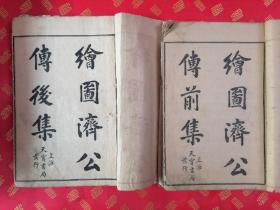 繪圖濟公
傳前集
上海
天寶書局
發行
繪圖濟公
傳後集
上海
天寶書局
發行